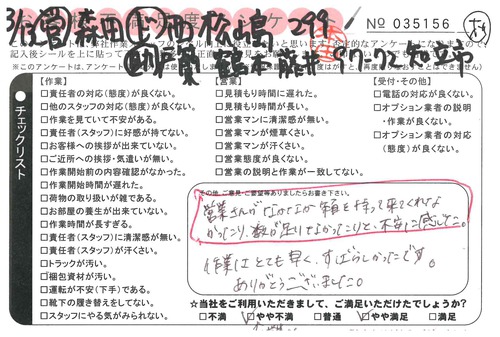 3/12 営 森田 上 松嶋 299
No 035156
記入後シールを上に貼って
【作業】
□責任者の対応(態度)が良くない。
□他のスタッフの対応(態度)が良くない。
□作業を見ていて不安がある。
□責任者(スタッフ)に好感が持てない。
□お客様への挨拶が出来ていない。
□ご近所への挨拶・気遣いが無い。
□作業開始前の内容確認がなかった。
□作業開始時間が遅れた。
□荷物の取り扱いが雑である。
□お部屋の養生が出来ていない。
□作業時間が長すぎる。
□責任者(スタッフ)に清潔感が無い。
□責任者(スタッフ)が汗くさい。
□トラックが汚い。
□梱包資材が汚い。
□運転が不安(下手)である。
□靴下の履き替えをしてない。
□スタッフにやる気がみられない。
【営業】
□見積もり時間に遅れた。
□見積もり時間が長い。
□営業マンに清潔感が無い。
□営業マンが煙草くさい。
□営業マンが汗くさい。
□営業態度が良くない。
□営業の説明と作業が一致してない。
【受付・その他】
□電話の対応が良くない。
□オプション業者の説明
・作業が良くない。
□オプション業者の対応
(態度)が良くない。
チェックリスト
その他、ご意見・ご要望等ありましたらお書き下さい。
営業さんがなかなか箱を持って来てくれな
かったり、数が足りなかったりと、不安に感じた。
作業はとても早く、すばらしかったです。
ありがとうございました。
☆当社をご利用いただきまして、ご満足いただけたでしょうか?
□不満 □やや不満 □普通 □やや満足 □満足